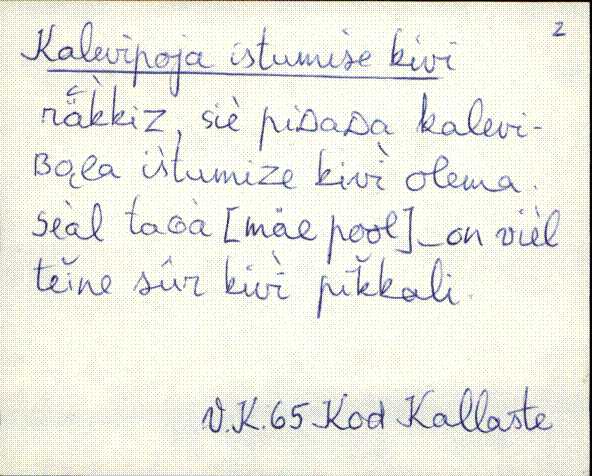 2
Kalevipoja istumise kivi
rä̆k̀kiz, siè piDaDa kalevi-
Bąla ìstumize kivì olema.
seàl taGà [mäe pool]_on vièl
teĭne sûr kivì pĭk̆kali.
V.K.65 Kod Kallaste